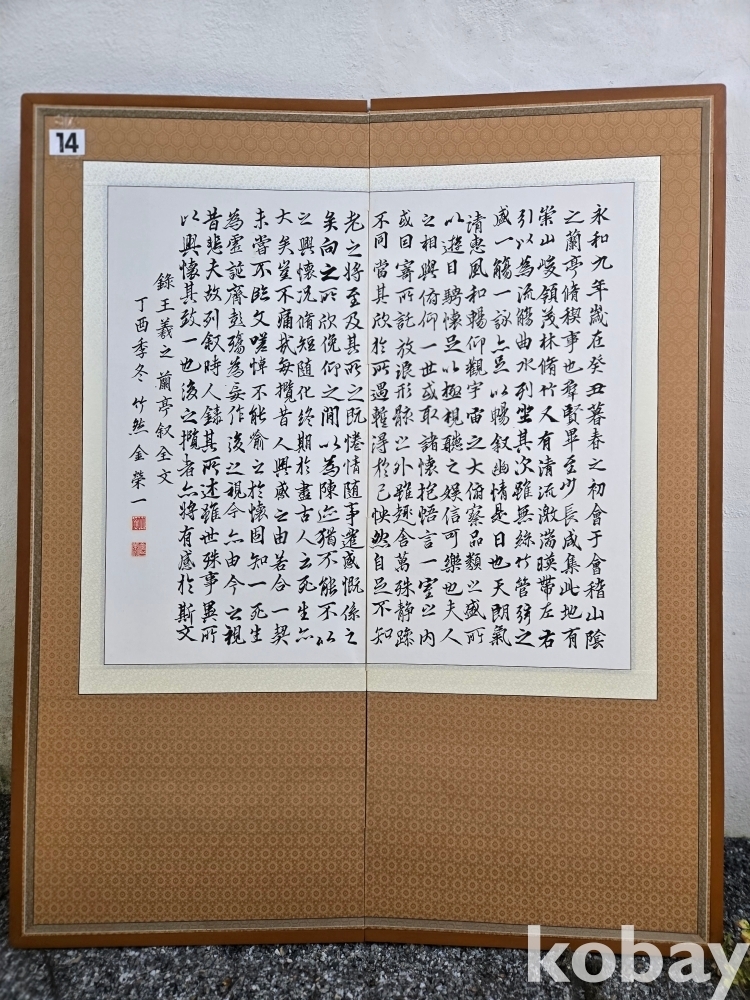 14
永和九年歲在癸丑暮春之初會于會稽山陰
之蘭亭脩稧事也群賢畢至少長咸集此地有
崇山峻領茂林脩竹又有清流激湍暎帶左右
引以為流觴曲水列坐其次雖無絲竹管弦之
盛一觴一詠亦足以暢叙幽情是日也天朗氣
清惠風和暢仰觀宇宙之大俯察品類之盛所
以遊目騁懷足以極視聽之娛信可樂也夫人
之相與俯仰一世或取諸懷抱悟言一室之内
或因寄所託放浪形骸之外雖趣舍萬殊静躁
不同當其欣於所遇蹔得於己怏然自足不知
老之將至及其所之既惓情隨事遷感慨係之
矣向之所欣俛仰之閒以為陳迹猶不能不以
之興懷況脩短隨化終期於盡古人云死生亦
大矣豈不痛哉每攬昔人興感之由若合一契
未嘗不臨文嗟悼不能喻之於懷固知一死生
為虛誕齊彭殤為妄作後之視今亦由今之視
昔悲夫故列叙時人錄其所述雖世殊事異所
以興懷其致一也後之攬者亦將有感於斯文
錄王羲之 蘭亭叙全文
丁酉季冬 竹然 金榮一
kobay